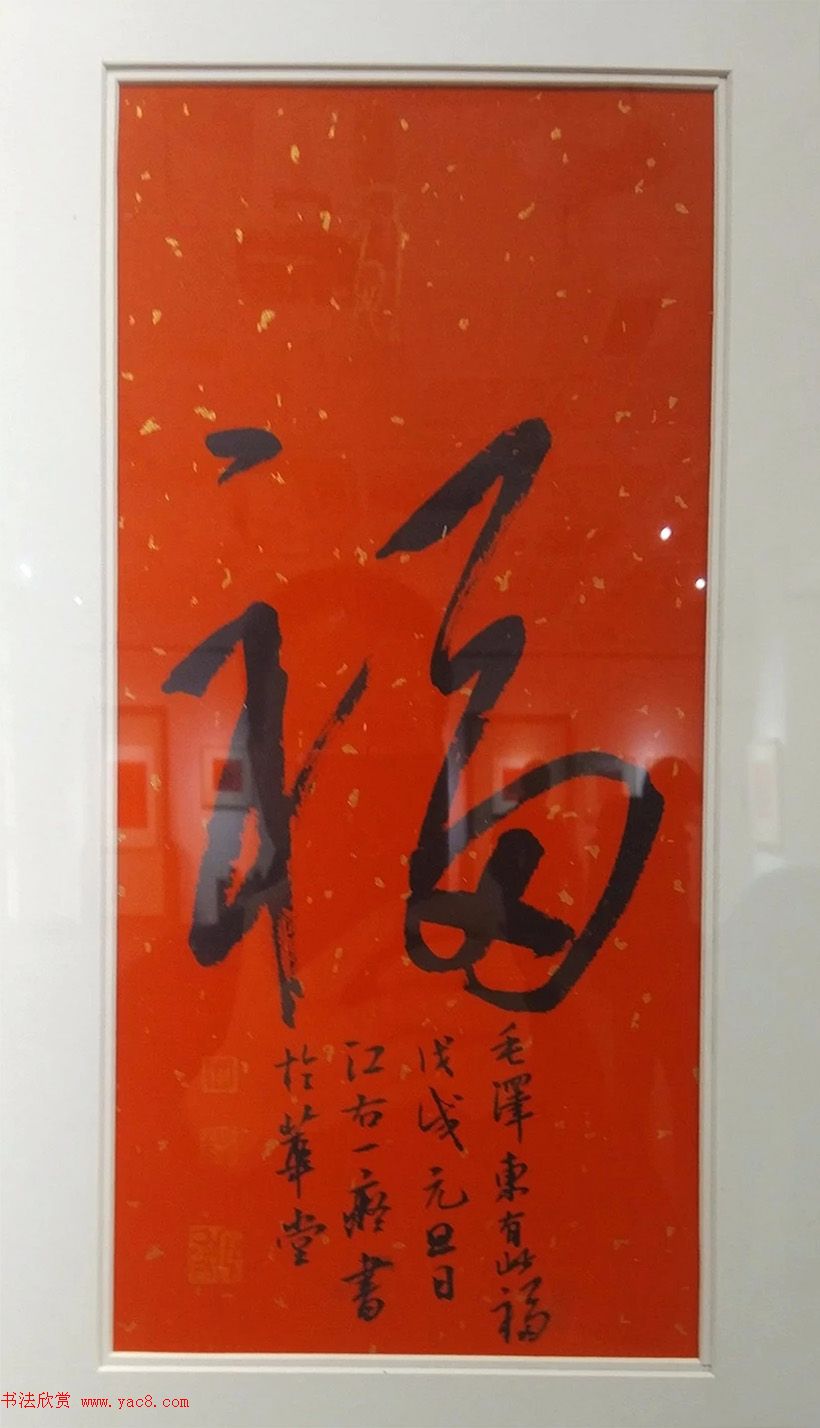 福
毛澤東有此福
戊戌元旦日
江右一癡書
於華堂
书法欣赏 www.yac8.com